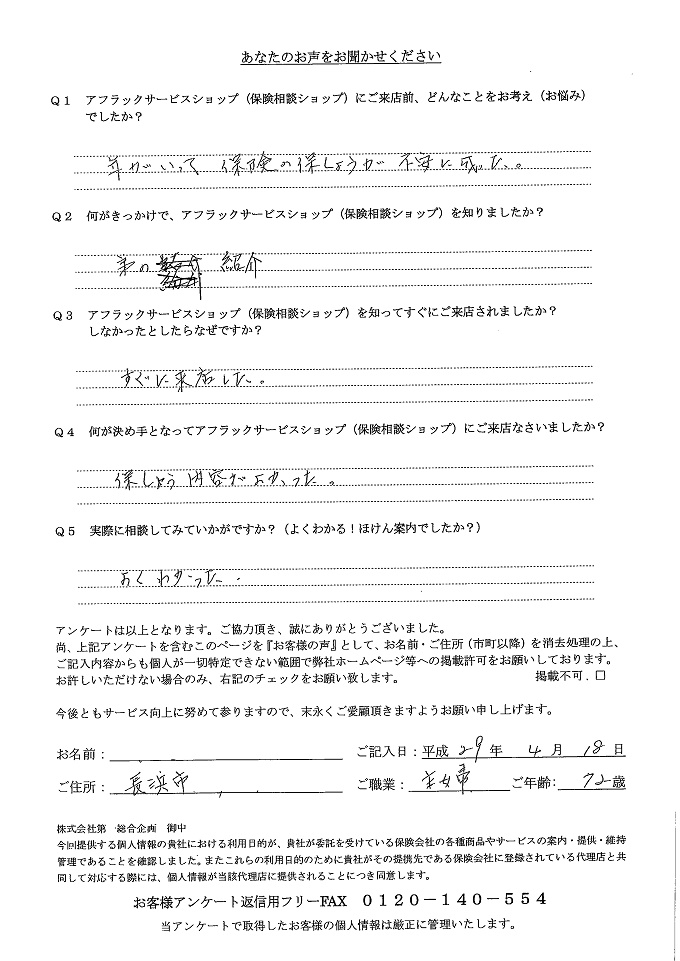 あなたのお声をお聞かせください
Q1 アフラックサービスショップ（保険相談ショップ）にご来店前、どんなことをお考え（お悩み）
でしたか？
年がいって 保険の保しょうが 不安に成った。
Q2 何がきっかけで、アフラックサービスショップ（保険相談ショップ）を知りましたか？
弟の 紹介
Q3 アフラックサービスショップ（保険相談ショップ）を知ってすぐにご来店されましたか？
しなかったとしたらなぜですか？
すぐに来店した。
Q4 何が決め手となってアフラックサービスショップ（保険相談ショップ）にご来店なさいましたか？
保しょう内容がよかった。
Q5 実際に相談してみていかがですか？（よくわかる！ほけん案内でしたか？）
よくわかった.
アンケートは以上となります。ご協力頂き、誠にありがとうございました。
尚、上記アンケートを含むこのページを『お客様の声』として、お名前・ご住所（市町以降）を消去処理の上、
ご記入内容からも個人が一切特定できない範囲で弊社ホームページ等への掲載許可をお願いしております。
お許しいただけない場合のみ、右記のチェックをお願い致します。 掲載不可．□
今後ともサービス向上に努めて参りますので、末永くご愛顧頂きますようお願い申し上げます。
お名前： ご記入日：平成 29 年 4 月 18 日
ご住所： 長浜市 ご職業： 主婦 ご年齢： 72 歳
株式会社第一総合企画 御中
今回提供する個人情報の貴社における利用目的が、貴社が委託を受けている保険会社の各種商品やサービスの案内・提供・維持
管理であることを確認しました。またこれらの利用目的のために貴社がその提携先である保険会社に登録されている代理店と共
同して対応する際には、個人情報が当該代理店に提供されることにつき同意します。
お客様アンケート返信用フリーFAX 0120－140－554
当アンケートで取得したお客様の個人情報は厳正に管理いたします。